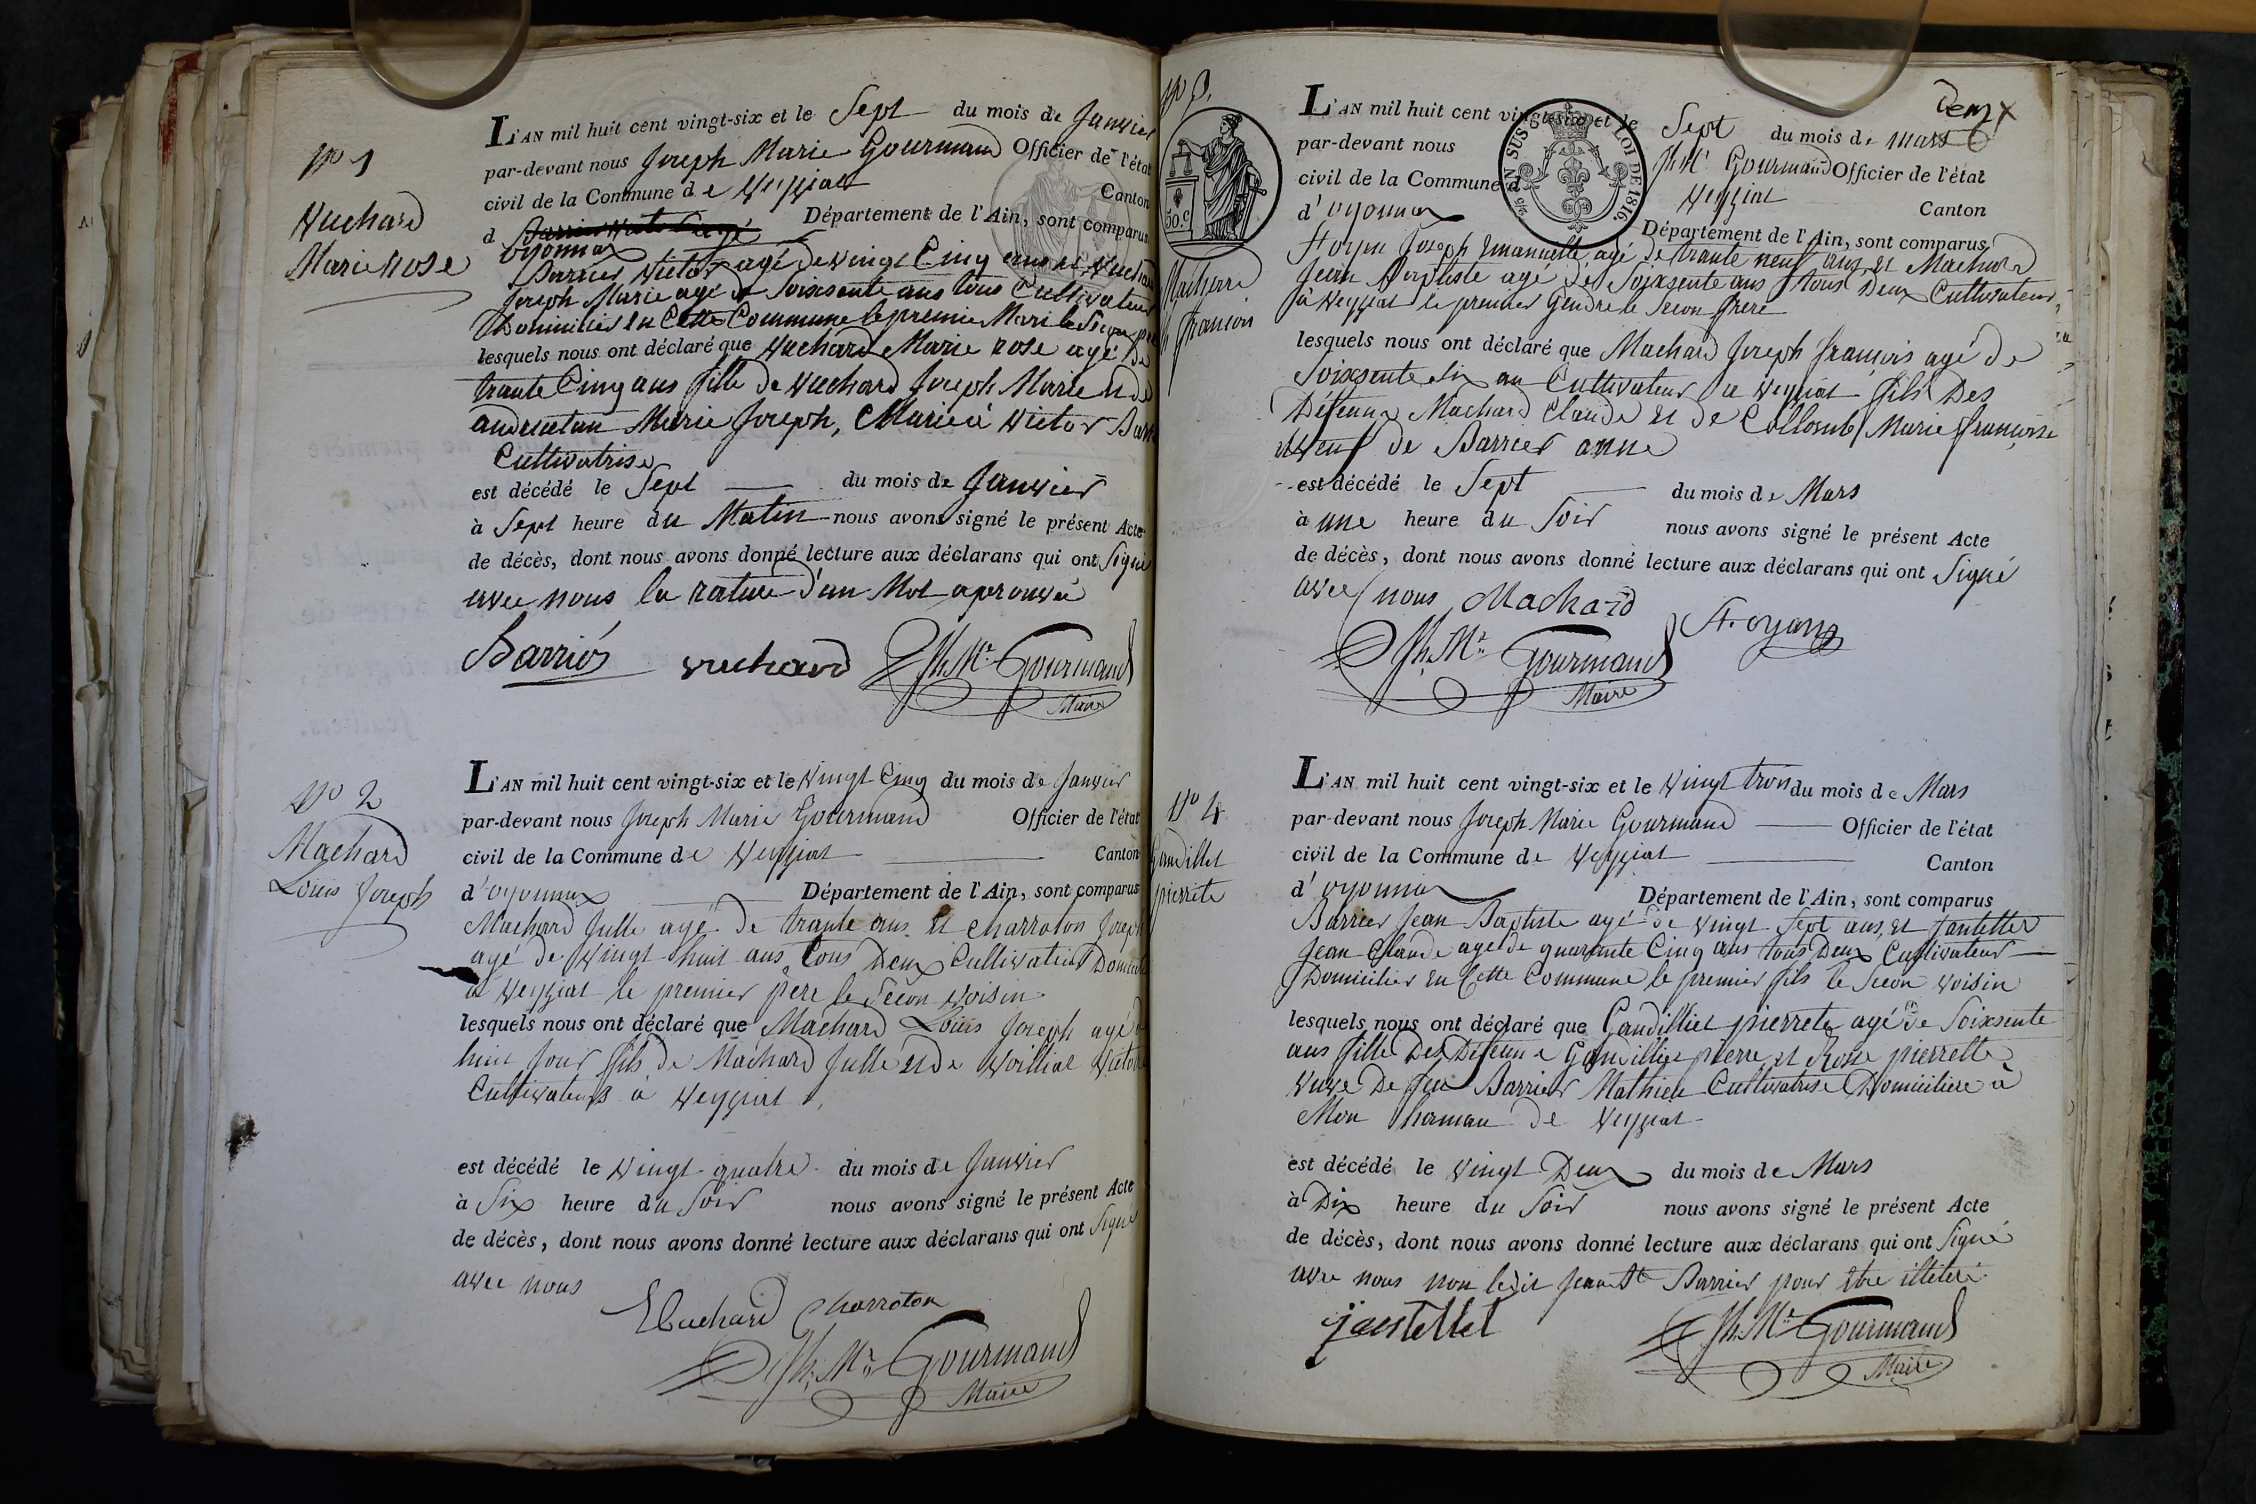 N° 1
Vuchard
Marie rose
L'AN mil huit cent vingt-six et le Sept du mois de Janvier
par-devant nous Joseph Marie Gourmand Officier de l'état
civil de la Commune de Veyziat Canton
d Barrier Victor agé Département de l'Ain, sont comparus
oyonnax
Barrier Victor agé de vingt Cinq ans et Vuchard
Joseph Marie agé de Soixsente ans tous Cultivateur
Domicilier en Cette Commune le premier Mari le Secon pere
lesquels nous ont déclaré que Vuchard Marie rose agé De
trante Cinq ans fille de Vuchard Joseph Marie et de
Marie Joseph, Mariée à Victor Barrier
Cultivatrise
est décédé le Sept du mois de Janvier
à Sept heure du Matin nous avons signé le présent Acte
de décès, dont nous avons donné lecture aux déclarans qui ont Signé
avec nous la rature d'un Mot aprouvée
Barrier vuchard Jh. Mie Gourmand
Maire
N° 2
Machard
Louis Joseph
L'AN mil huit cent vingt-six et le Vingt Cinq du mois de Janvier
par-devant nous Joseph Marie Gourmand Officier de l'état
civil de la Commune de Veyziat Canton
d'oyonnax Département de l'Ain, sont comparus
Machard Julle agé de trante ans et charroton Joseph
agé de Vingt huit ans tous Deux Cultivateur Domicilié
à Veyziat le premier père le Secon Voisin
lesquels nous ont déclaré que Machard Louis Joseph agé de
huit Jour fils de Machard Julle et de Voilliat Victoire
Cultivateurs à Veyziat
est décédé le Vingt quatre du mois de Janvier
à Six heure du Soir nous avons signé le présent Acte
de décès, dont nous avons donné lecture aux déclarans qui ont Signé
avec nous
Machard Charroton
Jh. Mie Gourmand
Maire
deux
N° 3
50.c
Machard
Jh francois
SUS LOI DE 1816.
L'AN mil huit cent vingt-six et le Sept du mois de mars
par-devant nous Jh Mie Gourmand Officier de l'état
civil de la Commune de Veyziat Canton
d'oyonnax Département de l'Ain, sont comparus
Joseph Emanuelle agé de trante neuf ans et Machard
Jean Baptiste agé de Soixsente ans tous Deux Cultivateur
à Veyziat le premier Gendre le Secon frere
lesquels nous ont déclaré que Machard Joseph françois agé de
Soixsente Six an Cultivateur a Veyziat fils Des
Défeunx Machard Claude et de Collomb Marie françoise
Veuf de Barrier anne
est décédé le Sept du mois de Mars
à une heure du Soir nous avons signé le présent Acte
de décès, dont nous avons donné lecture aux déclarans qui ont Signé
avec nous Machard
Jh. Mie Gourmand
Maire
N° 4
Gandillet
pierrete
L'AN mil huit cent vingt-six et le Vingt trois du mois de Mars
par-devant nous Joseph Marie Gourmand Officier de l'état
civil de la Commune de Veyziat Canton
d'oyonnax Département de l'Ain, sont comparus
Barrier Jean Baptiste agé de Vingt Sept ans, et Jantellet
Jean Claude age de quarante Cinq ans tous Deux Cultivateur
Domicilier en Cette Commune le premier fils le Secon Voisin
lesquels nous ont déclaré que Gandilliet pierrete agé de Soixsente
ans fille Des Défeunx Gandilliet pierre et Rose pierrette
Vuve De feu Barrier Mathieu Cultivatrise Domiciliere à
Mon hamau de Veyziat
est décédé le Vingt Deux du mois de Mars
à Dix heure du Soir nous avons signé le présent Acte
de décès, dont nous avons donné lecture aux déclarans qui ont Signé
avec nous non ledit Jean Bte Barrier pour etre illeteré
jantellet Jh. Mie Gourmand
Maire